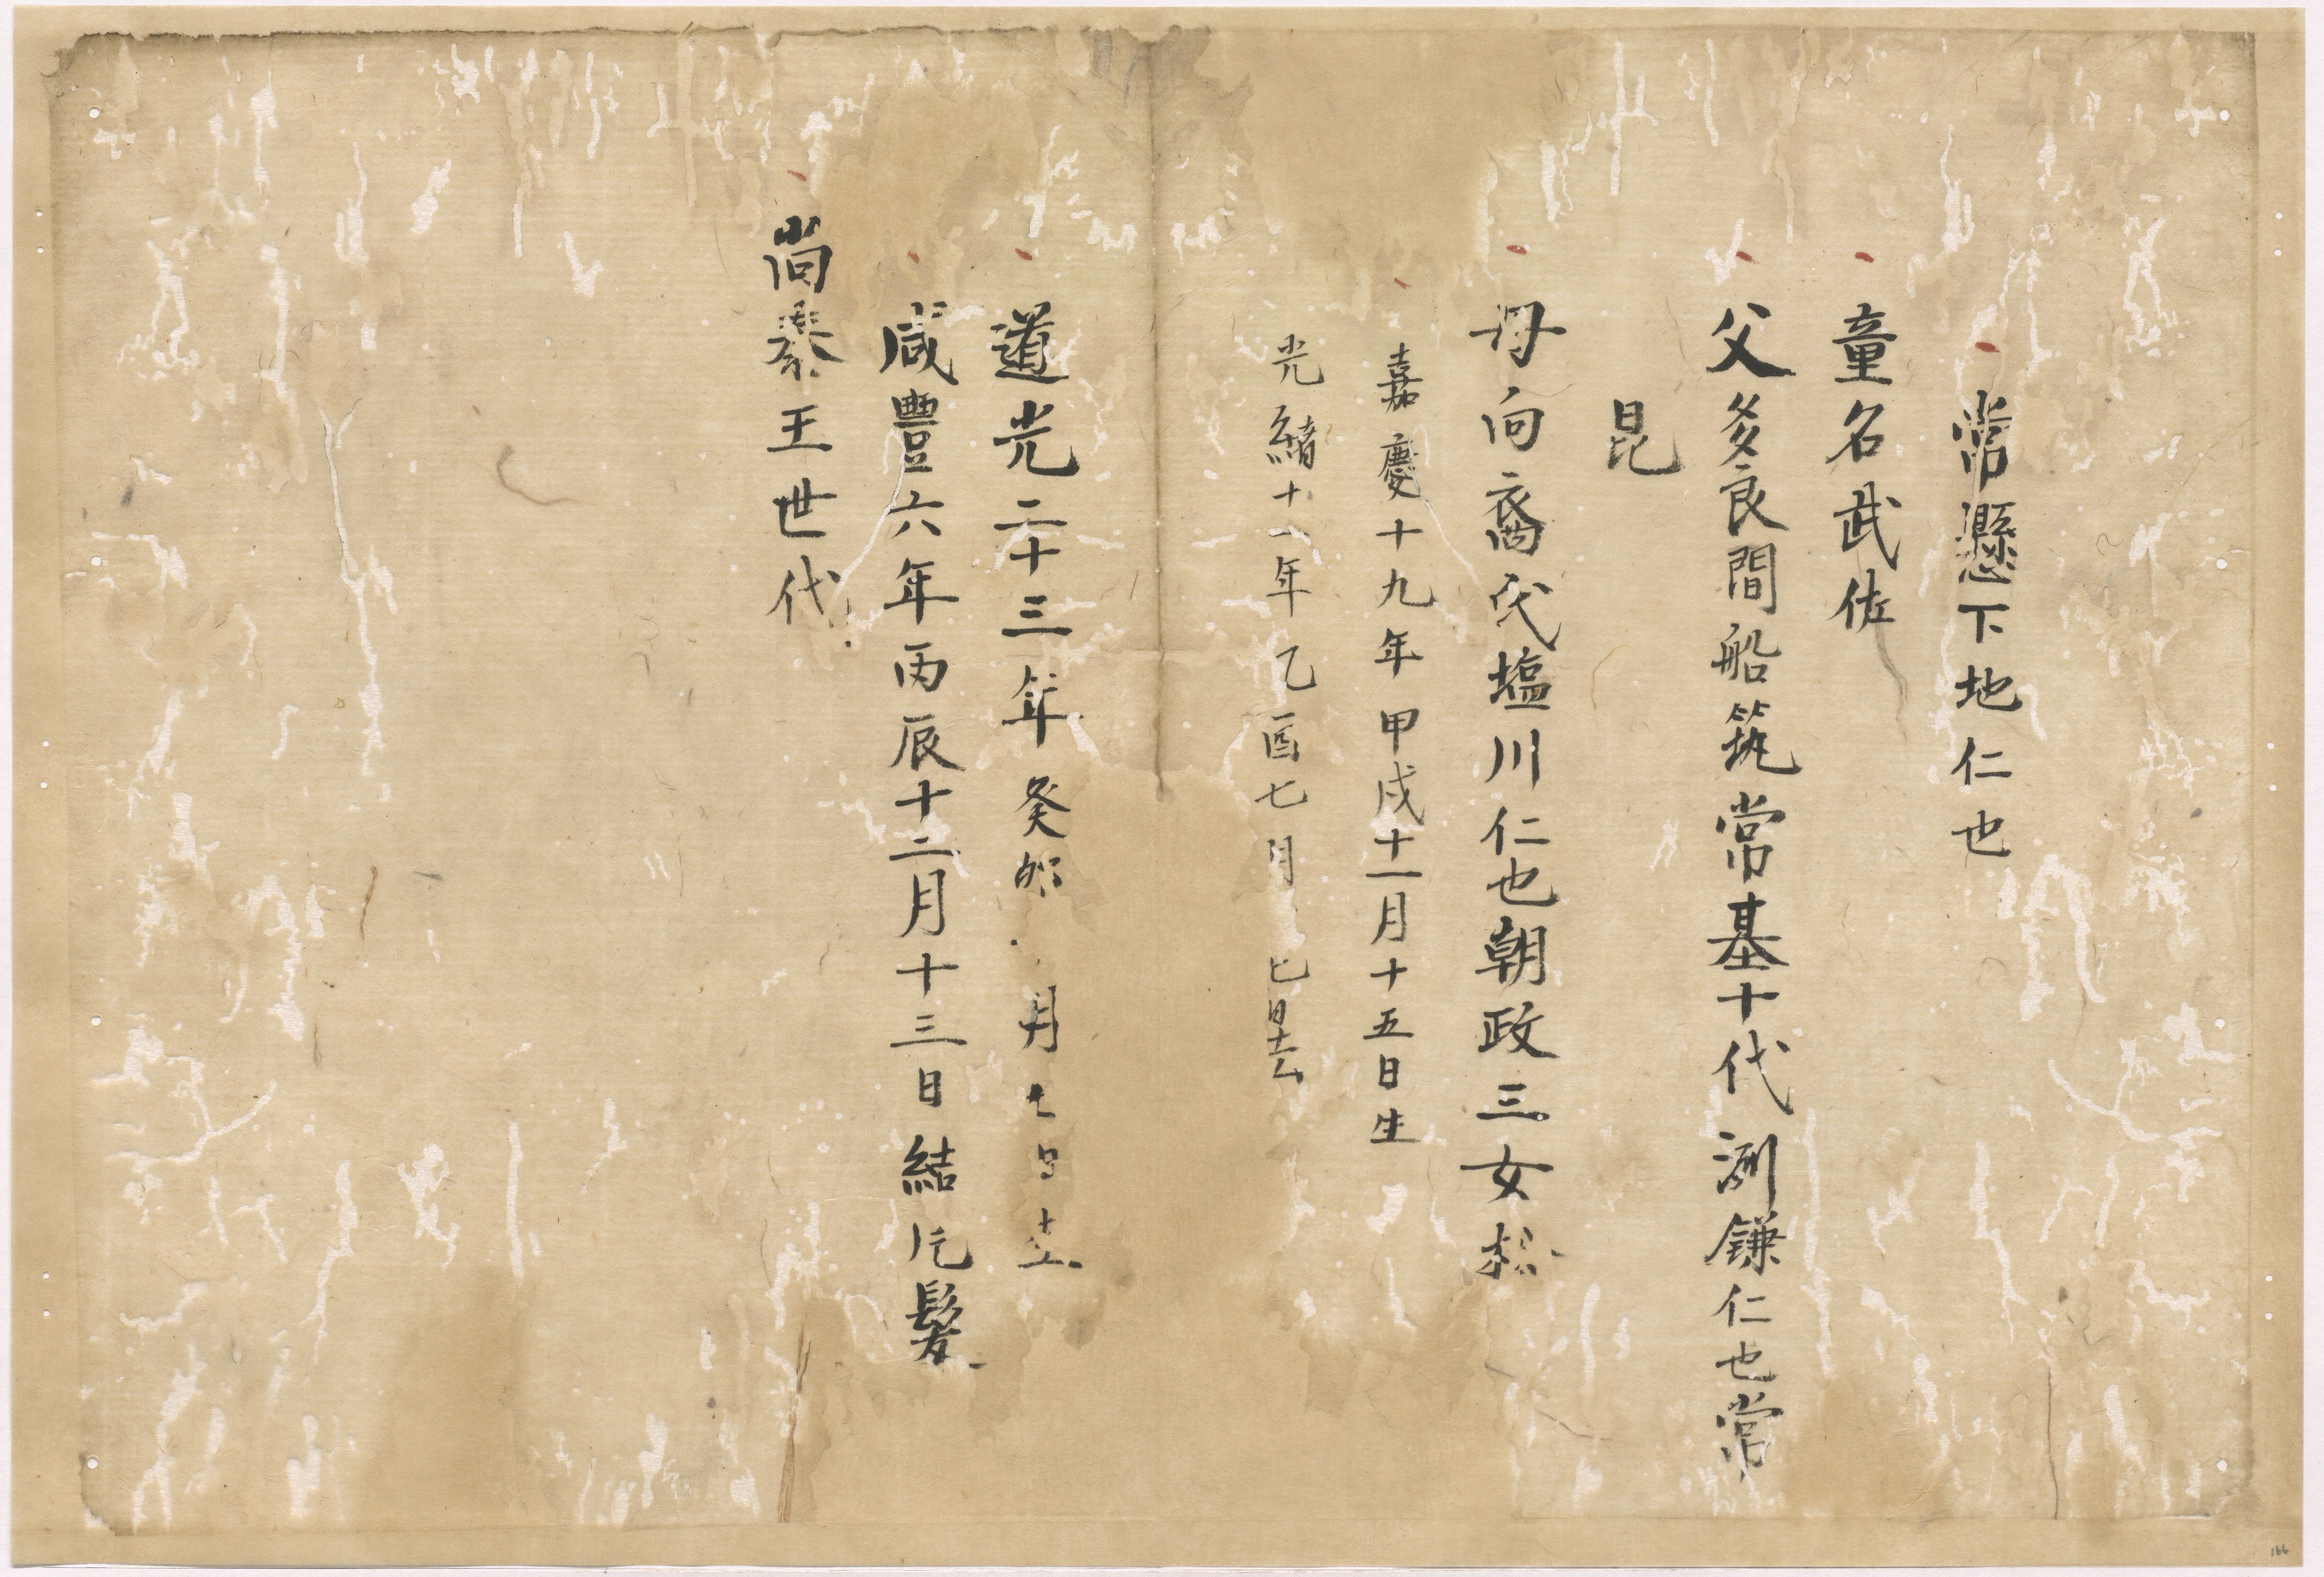 常懸下地仁也
童名武佐
父多良間船筑常基十代渕鎌仁也常
昆
母向裔氏塩川仁也朝政三女松
嘉慶十九年甲戌十一月十五日生
光緒十一年乙酉七月 七日去
道光二十三年癸卯 月七日生
咸豊六年丙辰十二月十三日結片髪
尚泰王世代
166